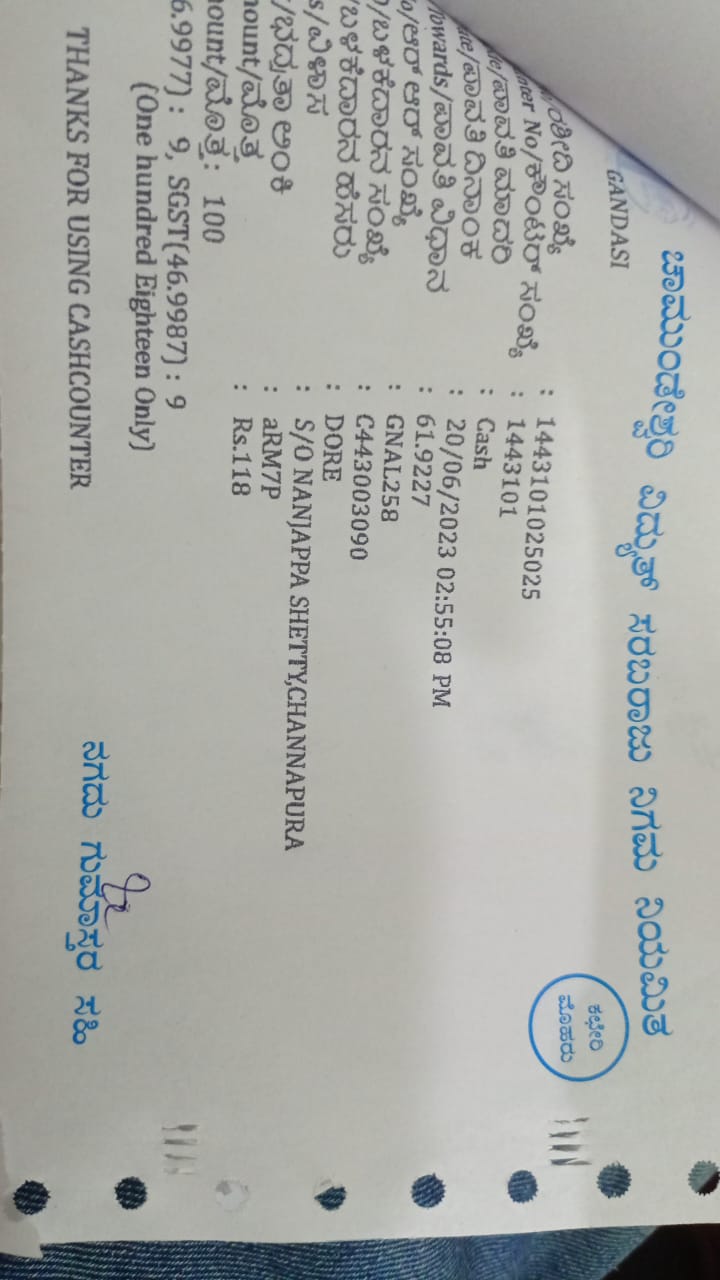 ಚಾಮುಂಡೇಶ್ವರಿ ವಿದ್ಯುತ್ ಸರಬರಾಜು ನಿಗಮ ನಿಯಮಿತ
GANDASI
ಕಛೇರಿ
ಮೊಹರು
ರಶೀದಿ ಸಂಖ್ಯೆ : 1443101025025
nter No/ಕೌಂಟರ್ ಸಂಖ್ಯೆ : 1443101
de/ಪಾವತಿ ಮಾದರಿ : Cash
ate/ಪಾವತಿ ದಿನಾಂಕ : 20/06/2023 02:55:08 PM
Towards/ಪಾವತಿ ವಿಧಾನ : 61.9227
o/ಆರ್ ಆರ್ ಸಂಖ್ಯೆ : GNAL258
/ಬಳಕೆದಾರನ ಸಂಖ್ಯೆ : C443003090
/ಬಳಕೆದಾರನ ಹೆಸರು : DORE
s/ವಿಳಾಸ : S/O NANJAPPA SHETTY,CHANNAPURA
/ಭದ್ರತಾ ಅಂಕಿ : aRM7P
ount/ಮೊತ್ತ : Rs.118
ount/ಮೊತ್ತ : 100
6.9977) : 9, SGST(46.9987) : 9
(One hundred Eighteen Only)
THANKS FOR USING CASHCOUNTER
ನಗದು ಗುಮಾಸ್ತರ ಸಹಿ